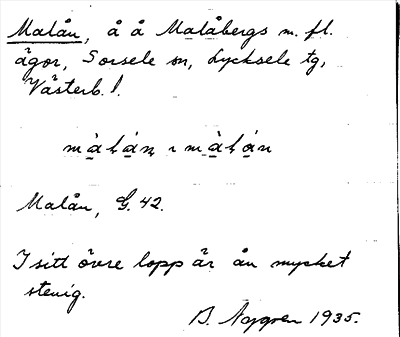 Malån, å å Malåbergs m. fl.
ägor, Sorsele sn, Lycksele tg,
Västerb. l.
màlán ı màlán
Malån, G. 42.
I sitt övre lopp är ån mycket
stenig.
B. 1935.